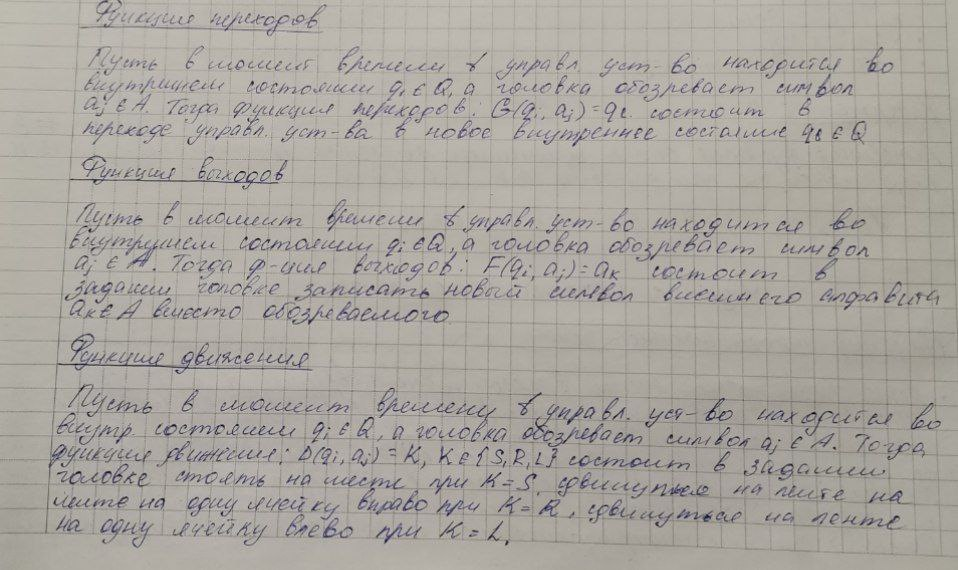 Функция переходов
Пусть в момент времени t управл. уст-во находится во
внутреннем состоянии qi ∈ Q, а головка обозревает символ
aj ∈ A. Тогда функция переходов: G(qi, aj) = qe состоит в
переходе управл. уст-ва в новое внутреннее состояние qe ∈ Q
Функция выходов
Пусть в момент времени t управл. уст-во находится во
внутреннем состоянии qi ∈ Q, а головка обозревает символ
aj ∈ A. Тогда ф-ция выходов: F(qi, aj) = ak состоит в
задании головке записать новый символ внешнего алфавита
ak ∈ A вместо обозреваемого.
Функция движения
Пусть в момент времени t управл. уст-во находится во
внутр. состоянии qi ∈ Q, а головка обозревает символ aj ∈ A. Тогда
функция движения: D(qi, aj) = K, K ∈ {S, R, L} состоит в задании
головке стоять на месте при K = S, сдвинуться на ленте на
ленте на одну ячейку вправо при K = R, сдвинуться на ленте
на одну ячейку влево при K = L.